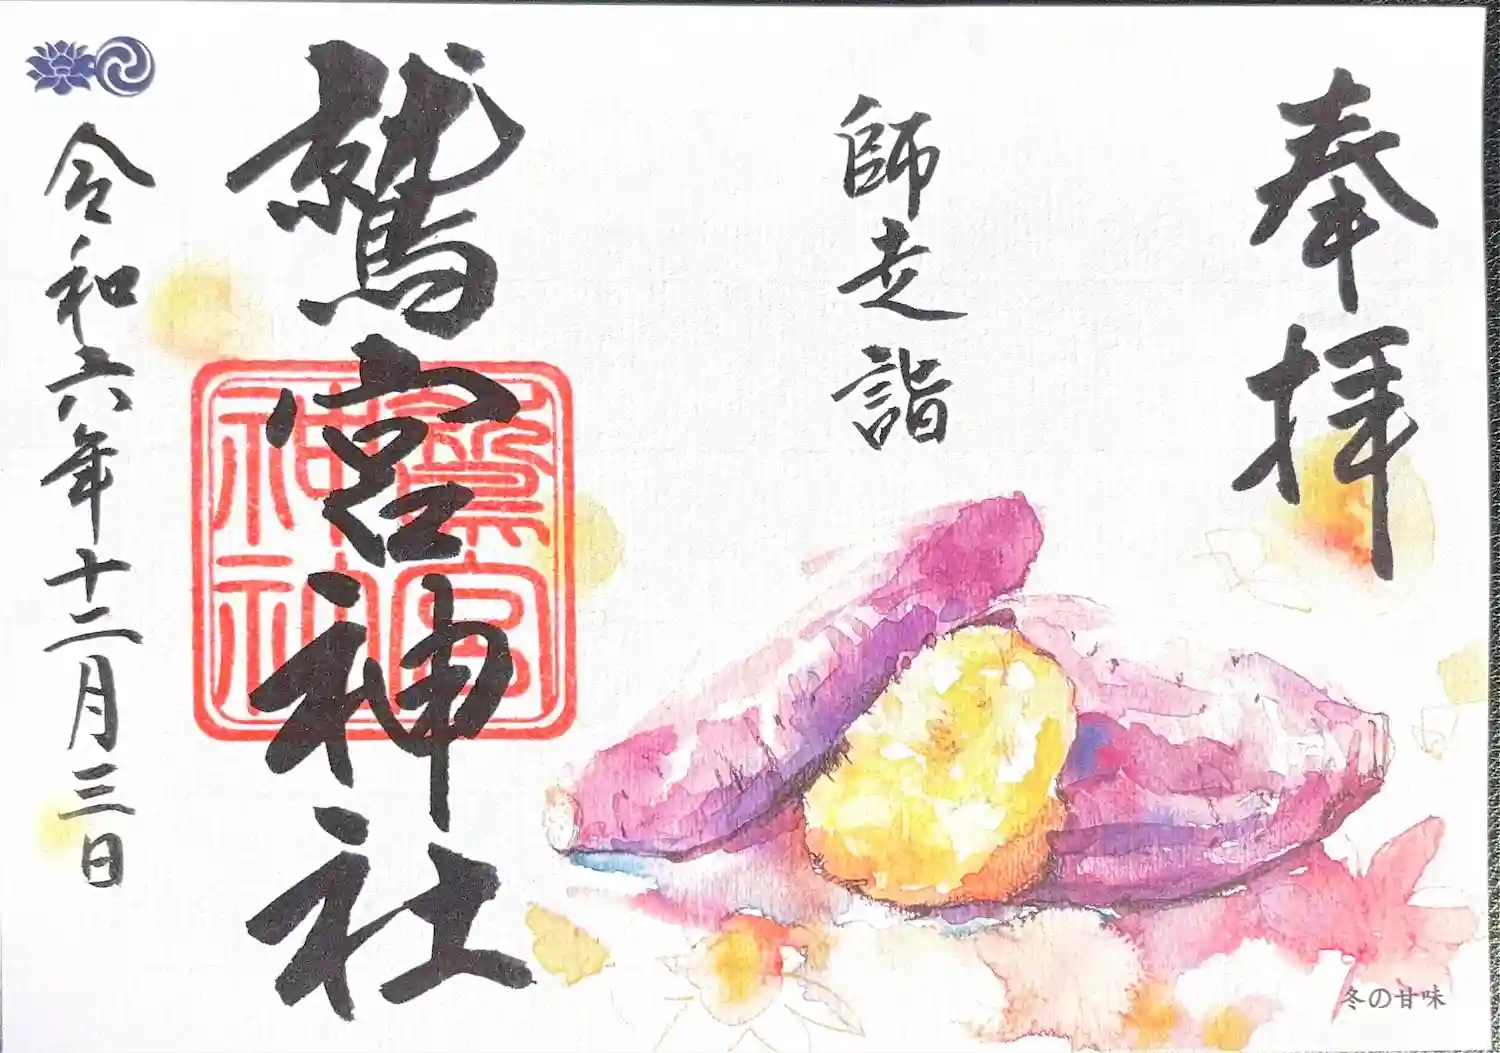 奉拝
師走詣
鷲宮神社
鷲宮
神社
令和六年十二月三日
冬の甘味